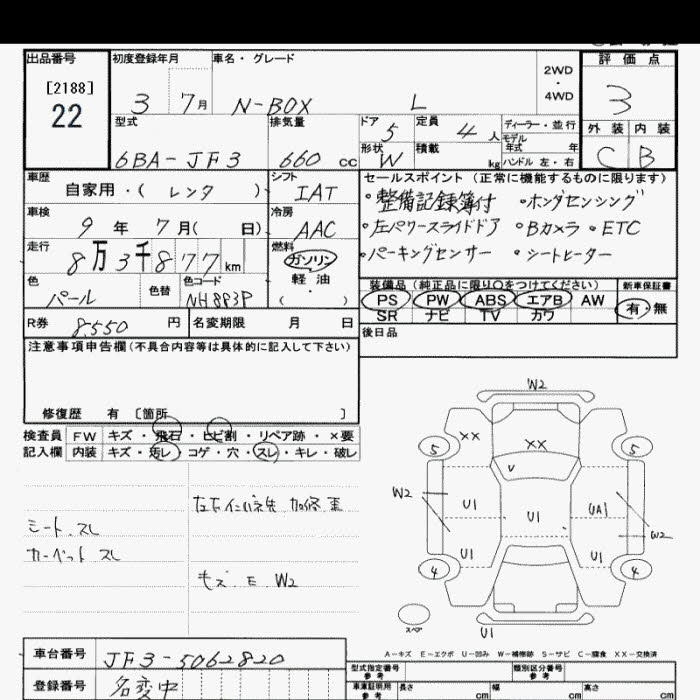 出品番号 初度登録年月 車名・グレード 2WD・4WD 評価点
[2188]
22 3 7月 N-BOX L 3
型式 排気量 ドア 5 定員 4人 ディーラー・並行 外装 内装
6BA-JF3 660cc 形状 W 積載 kg モデル年式 年 ハンドル 左・右 C B
車歴 シフト セールスポイント(正常に機能するものに限ります)
自家用・( レンタ ) IAT ・整備記録簿付 ・ホンダセンシング
車検 冷房 ・左パワースライドドア ・Bカメラ ・ETC
9年 7月( 日) AAC ・パーキングセンサー ・シートヒーター
走行 燃料
8万3千877km ガソリン
色 色替 色コード 軽油 装備品(純正品に限り○をつけてください) 新車保証書
パール NH883P ( ) PS PW ABS エアB AW 有・無
SR ナビ TV カワ
R券 8,550円 名変期限 月 日 後日品
注意事項申告欄(不具合内容等は具体的に記入して下さい)
修復歴 有 〔箇所 〕
検査員 FW キズ・飛石・ヒビ割・リペア跡・×要
記入欄 内装 キズ・汚レ・コゲ・穴・スレ・キレ・破レ
シート スレ
カーペット スレ
E W2
W2
5 XX XX 5
W2 U1 U1 UA1 W2
U1 U1
4 4
スペア
U1
A-キズ E-エクボ U-凹み W-補修跡 S-サビ C-腐食 XX-交換済
車台番号 JF3-5062820
登録番号 名変中
型式指定番号 参考 類別区分番号 参考
車車証明用 参考 長さ cm 幅 cm 高さ cm